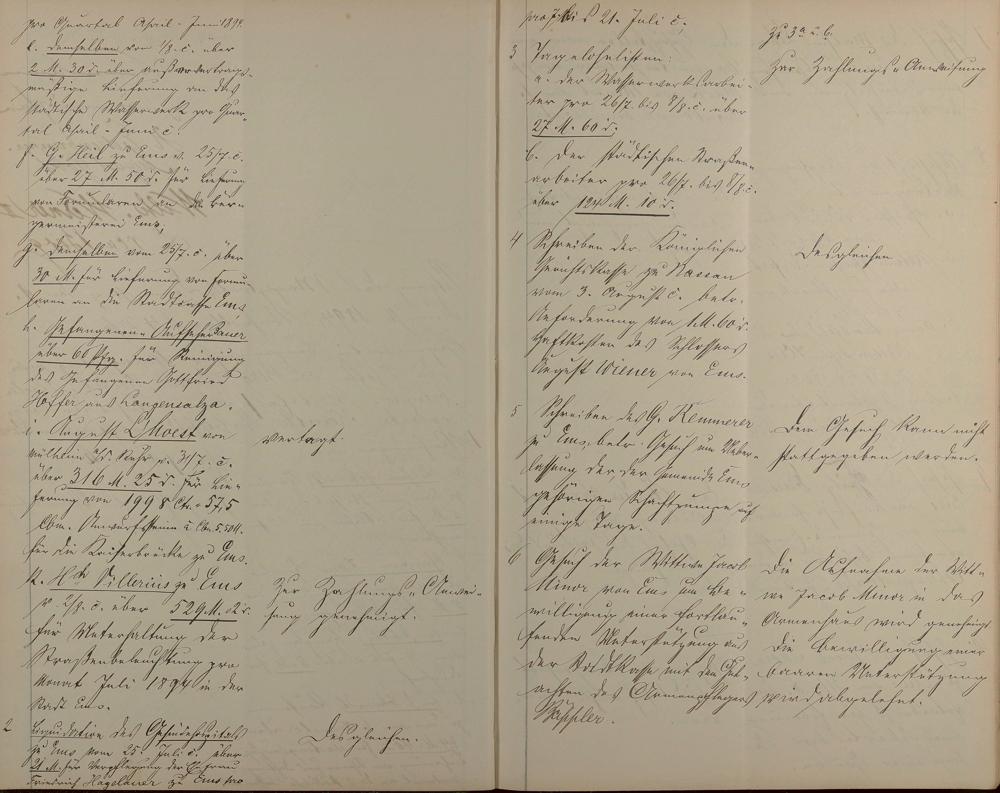 pro Quartal April - Juni 1894.
e. demselben vom 1/8. c. über
2 M. 30 d. über außervertrags-
mäßige Lieferung an das
städtische Wasserwerk pro Quar-
tal April - Juni c.
f. G. Heil zu Ems v. 25/7. c.
über 27 M. 50 d. für Lieferung
von Formularen an die Bür-
germeisterei Ems,
g. demselben vom 25/7. c. über
30 M. für Lieferung von Formu-
laren an die Stadtcasse Ems
h. Gefangenen-Aufseher Bauer
über 60 Pfg. für Reinigung
des Gefangenen Gottfried
Höffer aus Langensalza.
i. August Moest von
Mülheim a/d. Ruhr v. 31/7. c.
über 316 M. 25 d. für Lie-
ferung von 1998 Ctr. = 57,5
Cbm. à Cbm. 5.50 M.
für die Kaiserbrücke zu Ems.
vertagt.
k. Hch. Villerius zu Ems
v. 2/8. c. über 529 M. 02 d.
für Unterhaltung der
Straßenbeleuchtung pro
Monat Juli 1894 in der
Stadt Ems.
Zur Zahlungs-Anwei-
sung genehmigt.
2 Liquidation des Gemeindehospitals
zu Ems vom 25. Juli c. über
21 M. für Verpflegung der Ehefrau
Friedrich Hägelauer zu Ems pro
Desgleichen.
bis 21. Juli c.
3 Tagelohnlisten:
a. der Wasserwerksarbei-
ter pro 26/7. bis 8/8. c. über
27 M. 60 d.
b. der städtischen Straßen-
arbeiter pro 26/7. bis 8/8. c.
über 124 M. 10 d.
zu 3a u. b.
Zur Zahlungs-Anweisung
4 Schreiben der Königlichen
Gerichtskasse zu Nassau
vom 3. August c. betr.
Anforderung von 1 M. 60 d.
Haftkosten des Schlossers
August Wiener von Ems.
Desgleichen
5 Schreiben des G. Kemmerer
zu Ems, betr. Gesuch um Ueber-
lassung der, der Gemeinde Ems
gehörigen Schachtpumpe auf
einige Tage.
Dem Gesuch kann nicht
stattgegeben werden.
6 Gesuch der Wittwe Jacob
Minor von Ems um Be-
willigung einer fortlau-
fenden Unterstützung aus
der Stadtkasse mit dem Gut-
achten des Armenpflegers
Die Aufnahme der Witt-
we Jacob Minor in das
Armenhaus wird genehmigt
Die Bewilligung einer
baaren Unterstützung
wird abgelehnt.